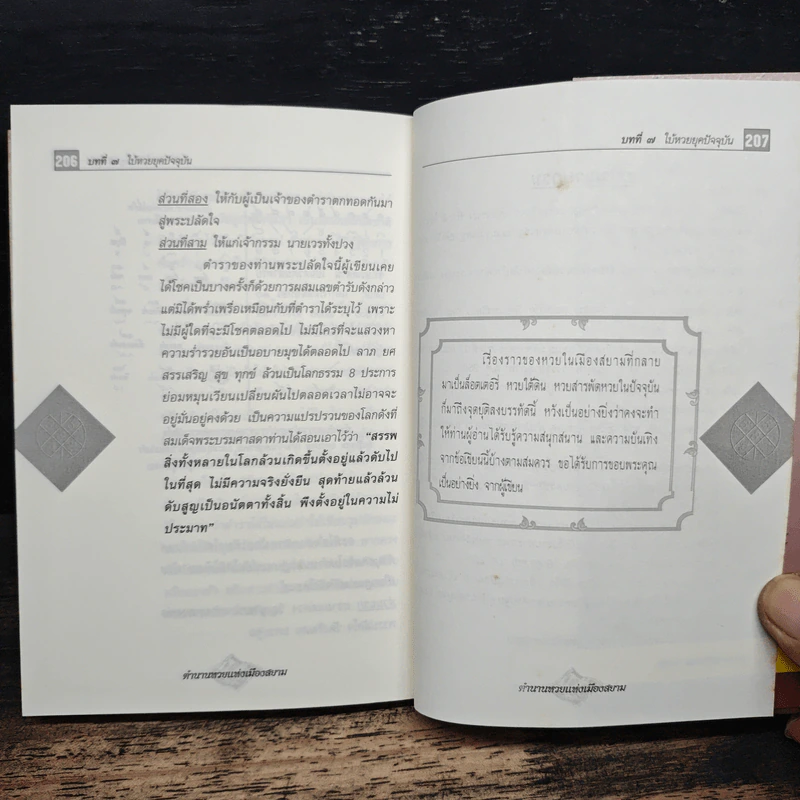 206 บทที่ ๗ ใบ้หวยยุคปัจจุบัน
ส่วนที่สอง ให้กับผู้เป็นเจ้าของตำราตกทอดกันมา
สู่พระปลัดใจ
ส่วนที่สาม ให้แก่เจ้ากรรม นายเวรทั้งปวง
ตำราของท่านพระปลัดใจนี้ผู้เขียนเคย
ได้โชคเป็นบางครั้งก็ด้วยการผสมเลขตำรับดังกล่าว
แต่มิได้พร่ำเพรื่อเหมือนกับที่ตำราได้ระบุไว้ เพราะ
ไม่มีผู้ใดที่จะมีโชคตลอดไป ไม่มีใครที่จะแสวงหา
ความร่ำรวยอันเป็นอบายมุขได้ตลอดไป ลาภ ยศ
สรรเสริญ สุข ทุกข์ ล้วนเป็นโลกธรรม 8 ประการ
ย่อมหมุนเวียนเปลี่ยนผันไปตลอดเวลาไม่อาจจะ
อยู่มั่นอยู่คงด้วย เป็นความแปรปรวนของโลกดังที่
สมเด็จพระบรมศาสดาท่านได้สอนเอาไว้ว่า “สรรพ
สิ่งทั้งหลายในโลกล้วนเกิดขึ้นตั้งอยู่แล้วดับไป
ในที่สุด ไม่มีความจริงยั่งยืน สุดท้ายแล้วล้วน
ดับสูญเป็นอนัตตาทั้งสิ้น พึงตั้งอยู่ในความไม่
ประมาท”
ตำนานหวยแห่งเมืองสยาม
บทที่ ๗ ใบ้หวยยุคปัจจุบัน 207
เรื่องราวของหวยในเมืองสยามที่กลาย
มาเป็นล็อตเตอรี่ หวยใต้ดิน หวยสารพัดหวยในปัจจุบัน
ก็มาถึงจุดยุติลงบรรทัดนี้ หวังเป็นอย่างยิ่งว่าคงจะทำ
ให้ท่านผู้อ่านได้รับรู้ความสนุกสนาน และความบันเทิง
จากข้อเขียนนี้บ้างตามสมควร ขอได้รับการขอบพระคุณ
เป็นอย่างยิ่ง จากผู้เขียน
ตำนานหวยแห่งเมืองสยาม